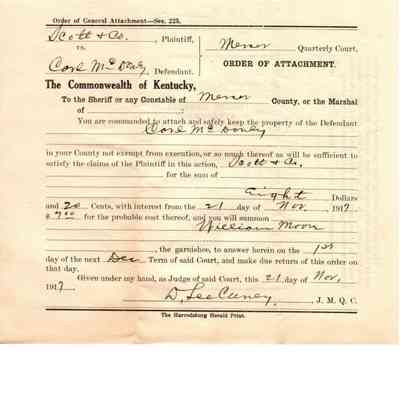 Order of General Attachment—Sec. 223.
Scott & Co., Plaintiff,
vs.
Carl Mc Doney, Defendant.
Mercer Quarterly Court,
ORDER OF ATTACHMENT.
The Commonwealth of Kentucky,
To the Sheriff or any Constable of Mercer County, or the Marshal
of ;
You are commanded to attach and safely keep the property of the Defendant
Carl Mc Doney
in your County not exempt from execution, or so much thereof as will be sufficient to
satisfy the claims of the Plaintiff in this action, Scott & Co.
for the sum of
Eight Dollars
and 20 Cents, with interest from the 21 day of Nov. 1917
$ 7.00 for the probable cost thereof, and you will summon
William Moon
, the garnishee, to answer herein on the 1st
day of the next Dec Term of said Court, and make due return of this order on
that day.
Given under my hand, as Judge of said Court, this 21 day of Nov.
1917.
D. Lee , J. M. Q. C.
The Harrodsburg Herald Print.